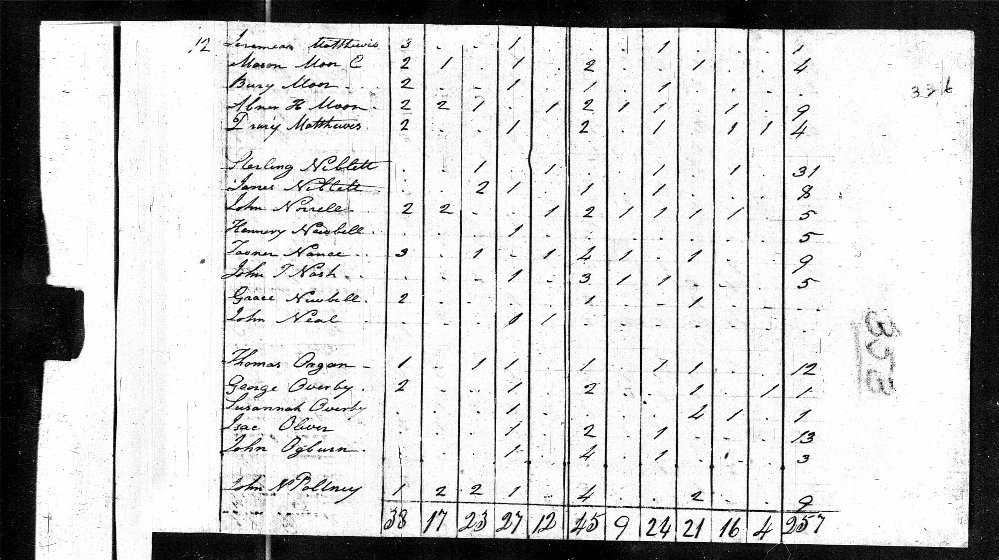 12 Jeremeah Matthews 3 . . 1 . . . 1 . . . 1
Mason Moor C 2 1 . 1 . 2 . . 1 . . 4
Bury Moor 2 . . 1 . 1 . 1 . . .
Abner H Moon 2 2 1 . 1 2 1 1 . 1 . 9
Drury Matthews 2 . . 1 . 2 . 1 . 1 1 4
336
Sterling Niblett . . 1 . 1 . . 1 . 1 . 31
James Niblett . . 2 1 . 1 . 1 . . . 8
John Norrell 2 2 . . 1 2 1 1 1 1 . 5
Hennery Newbell . . . 1 . . . . . . . 5
Tavner Nance 3 . 1 . 1 4 1 . 1 . . 9
John T Nash . . . 1 . 3 1 1 . . . 5
Grace Newbell 2 . . . . 1 . . 1 . .
John Neal . . . 1 1 . . . . . .
Thomas Organ 1 . 1 1 . 1 . 1 1 . . 12
George Overby 2 . . 1 . 2 . . 1 . 1 1
Susannah Overby . . . 1 . . . . 4 1 . 1
Isac Oliver . . . 1 . 2 . 1 . . . 13
John Ogburn . . . 1 . 4 . 1 . . . 3
John N Pollney 1 2 2 1 . 4 . . 2 . . 9
38 17 23 27 12 45 9 24 21 16 4 257